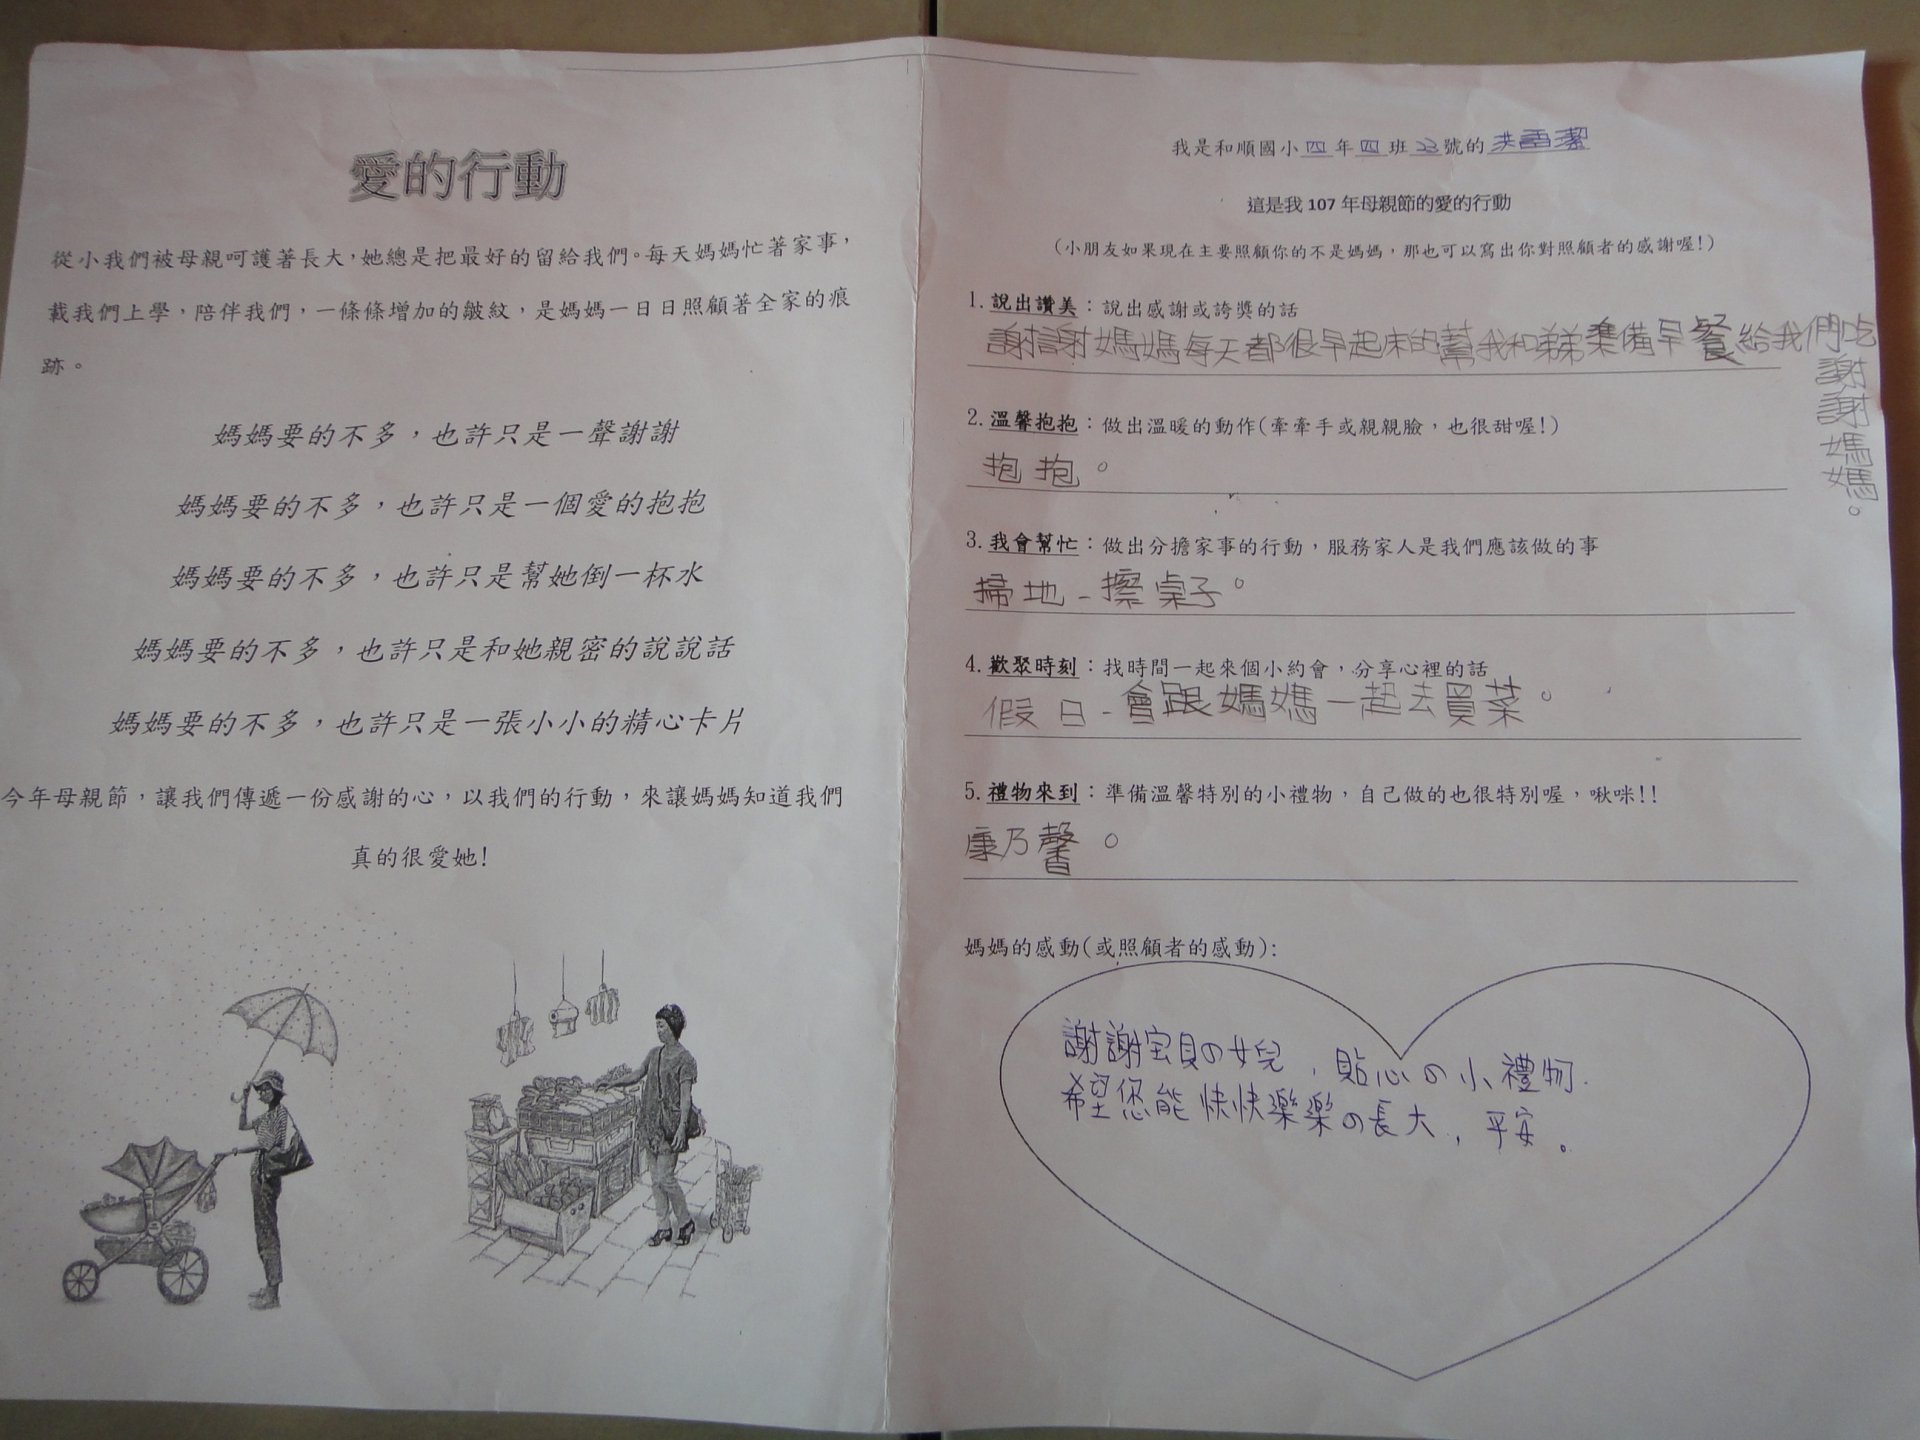 愛的行動
從小我們被母親呵護著長大，她總是把最好的留給我們。每天媽媽忙著家事，
載我們上學，陪伴我們，一條條增加的皺紋，是媽媽一日日照顧著全家的痕
跡。
媽媽要的不多，也許只是一聲謝謝
媽媽要的不多，也許只是一個愛的抱抱
媽媽要的不多，也許只是幫她倒一杯水
媽媽要的不多，也許只是和她親密的說說話
媽媽要的不多，也許只是一張小小的精心卡片
今年母親節，讓我們傳遞一份感謝的心，以我們的行動，來讓媽媽知道我們
真的很愛她!
我是和順國小四年四班23號的洪語潔
這是我 107 年母親節的愛的行動
(小朋友如果現在主要照顧你的不是媽媽，那也可以寫出你對照顧者的感謝喔!)
1.說出讚美：說出感謝或誇獎的話
謝謝媽媽每天都很早起床的幫我和弟弟準備早餐給我們吃
謝謝媽媽。
2.溫馨抱抱：做出溫暖的動作(牽牽手或親親臉，也很甜喔!)
抱抱。
3.我會幫忙：做出分擔家事的行動，服務家人是我們應該做的事
掃地-擦桌子。
4.歡聚時刻：找時間一起來個小約會，分享心裡的話
假日-會跟媽媽一起去買菜。
5.禮物來到：準備溫馨特別的小禮物，自己做的也很特別喔，啾咪!!
康乃馨。
媽媽的感動(或照顧者的感動):
謝謝宝貝の女兒，貼心の小禮物.
希望您能快快樂樂の長大，平安。